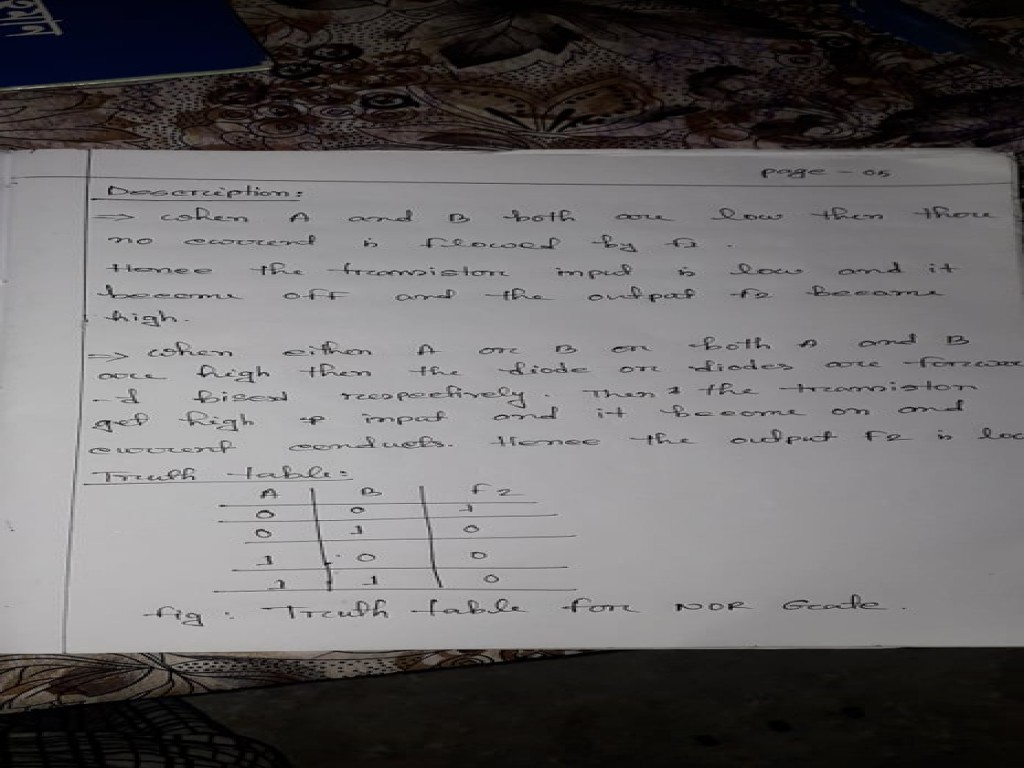 page - 05
Description:
⇒ when A and B both are low then there
no current is flowed by F2.
Hence the transistor input is low and it
become off and the output F2 become
high.
⇒ when either A or B or both A and B
are high then the diode or diodes are forwar
-d bised respectively. Then the transistor
get high input and it become on and
current conducts. Hence the output F2 is low
Truth table:
A B F2
0 0 1
0 1 0
1 0 0
1 1 0
fig : Truth table for NOR Gate.